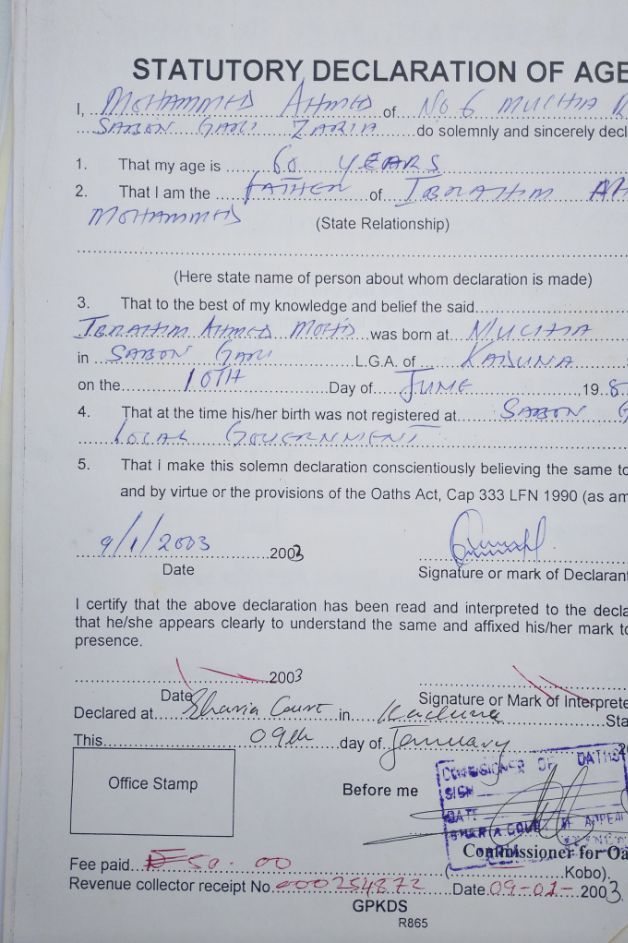 STATUTORY DECLARATION OF AGE
I, MOHAMMED AHMED of NO 6 MUCHIA R
SABON GARI ZARIA do solemnly and sincerely decl
1. That my age is 60 YEARS
2. That I am the FATHER of IBRAHIM AH
MOHAMMED
(State Relationship)
(Here state name of person about whom declaration is made)
3. That to the best of my knowledge and belief the said
IBRAHIM AHMED MOHD was born at MUCHIA
in SABON GARI L.G.A. of KADUNA
on the 10TH Day of JUNE 198
4. That at the time his/her birth was not registered at SABON G
LOCAL GOVERNMENT
5. That I make this solemn declaration conscientiously believing the same to
and by virtue or the provisions of the Oaths Act, Cap 333 LFN 1990 (as am
9/1/2003 2003
Date
Signature or mark of Declarant
I certify that the above declaration has been read and interpreted to the decla
that he/she appears clearly to understand the same and affixed his/her mark to
presence.
2003
Date
Signature or Mark of Interprete
Declared at Sharia Court in Kaduna Sta
This 09th day of January 20
Office Stamp
Before me
COMMISSIONER OF OATHS
SIGN
DATE
SHARIA COURT OF APPEAL
Commissioner for Oa
Fee paid ₦50.00 ( Kobo).
Revenue collector receipt No. 000254872 Date 09-01- 2003.
GPKDS
R865